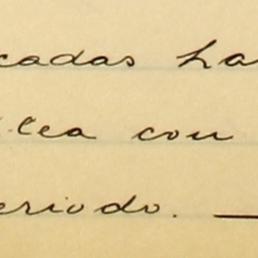 cadas ha
lea con
eriodo. —